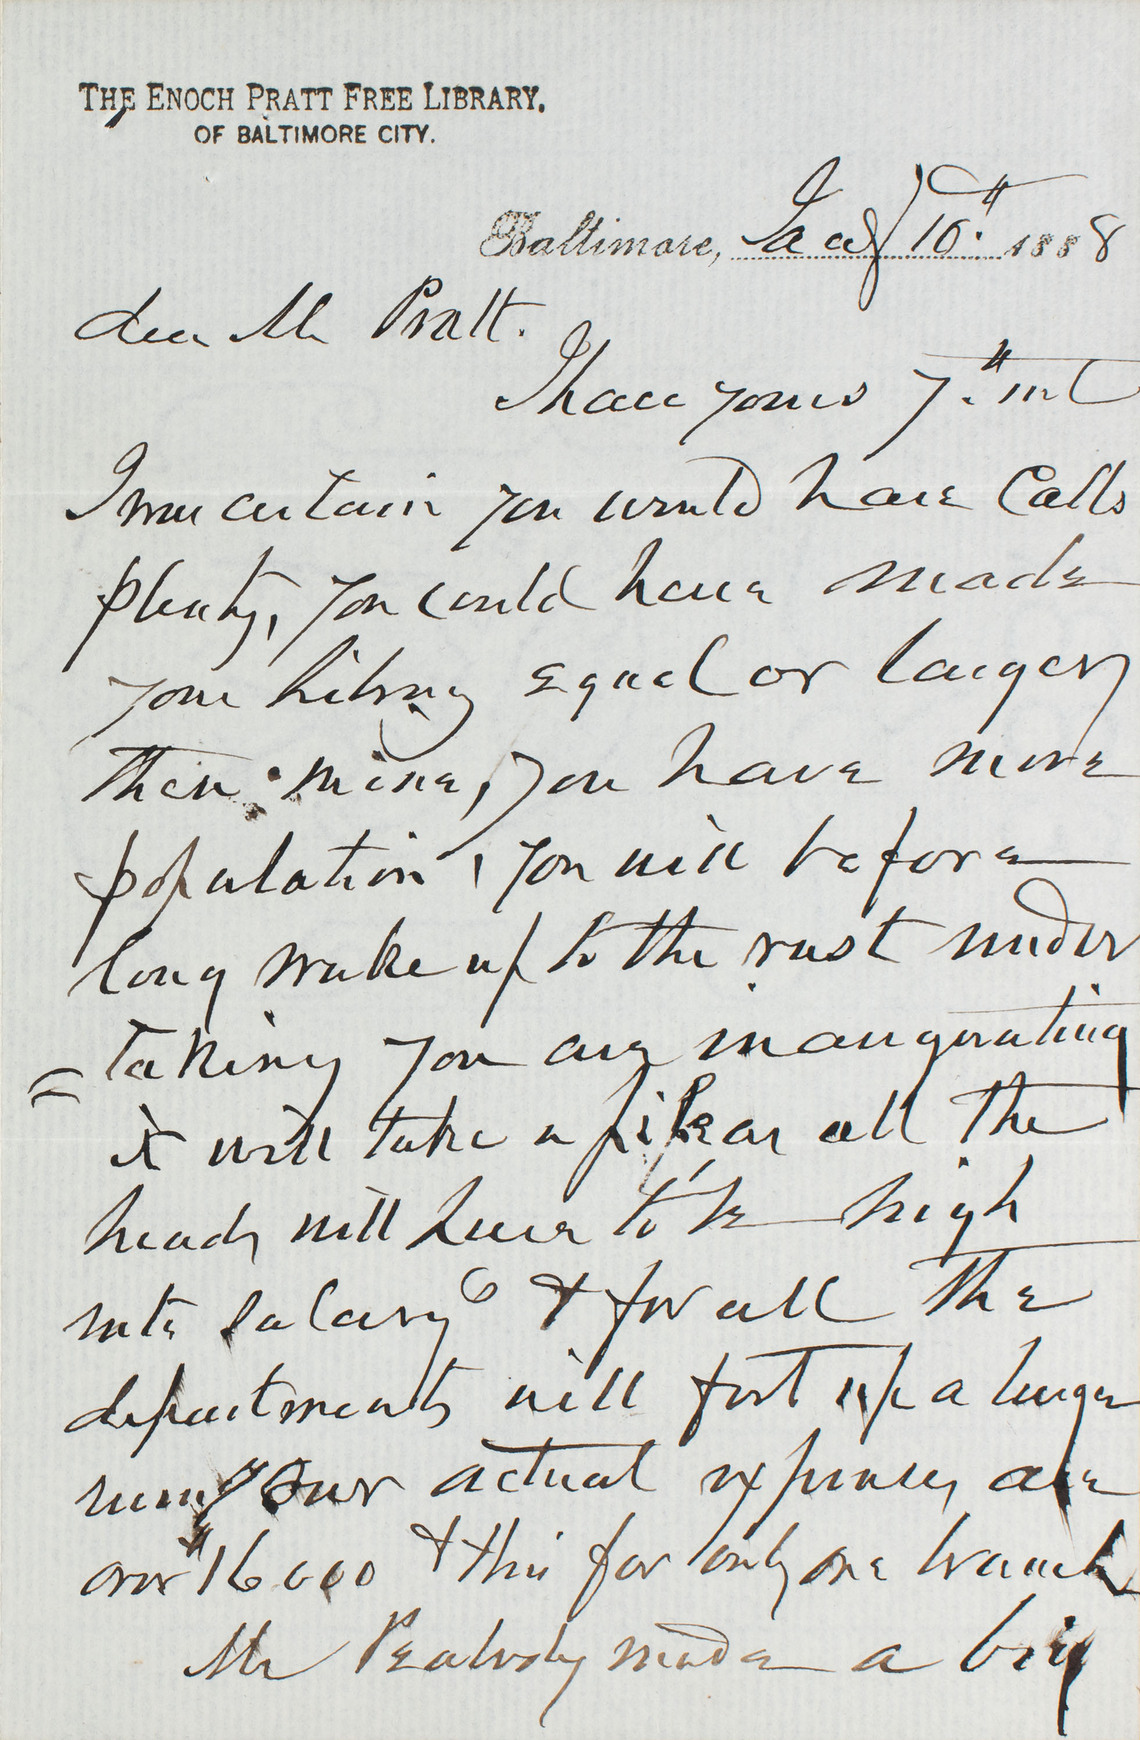 THE ENOCH PRATT FREE LIBRARY.
OF BALTIMORE CITY.
Baltimore, Jany 10th 1888
dear Mr Pratt.
I have yours 7th inst
I was certain you would have Calls
plenty, you could have made
your Library Equal or larger
then mine, you have more
population, you will before
long wake up to the vast under
= taking you are inaugurating
it will take a all the
heads will have to be high
rate Salarys & for all the
departments will foot up a large
sum, Our actual expenses are
over $16000 & this for only one branch
Mr Peabody made a big